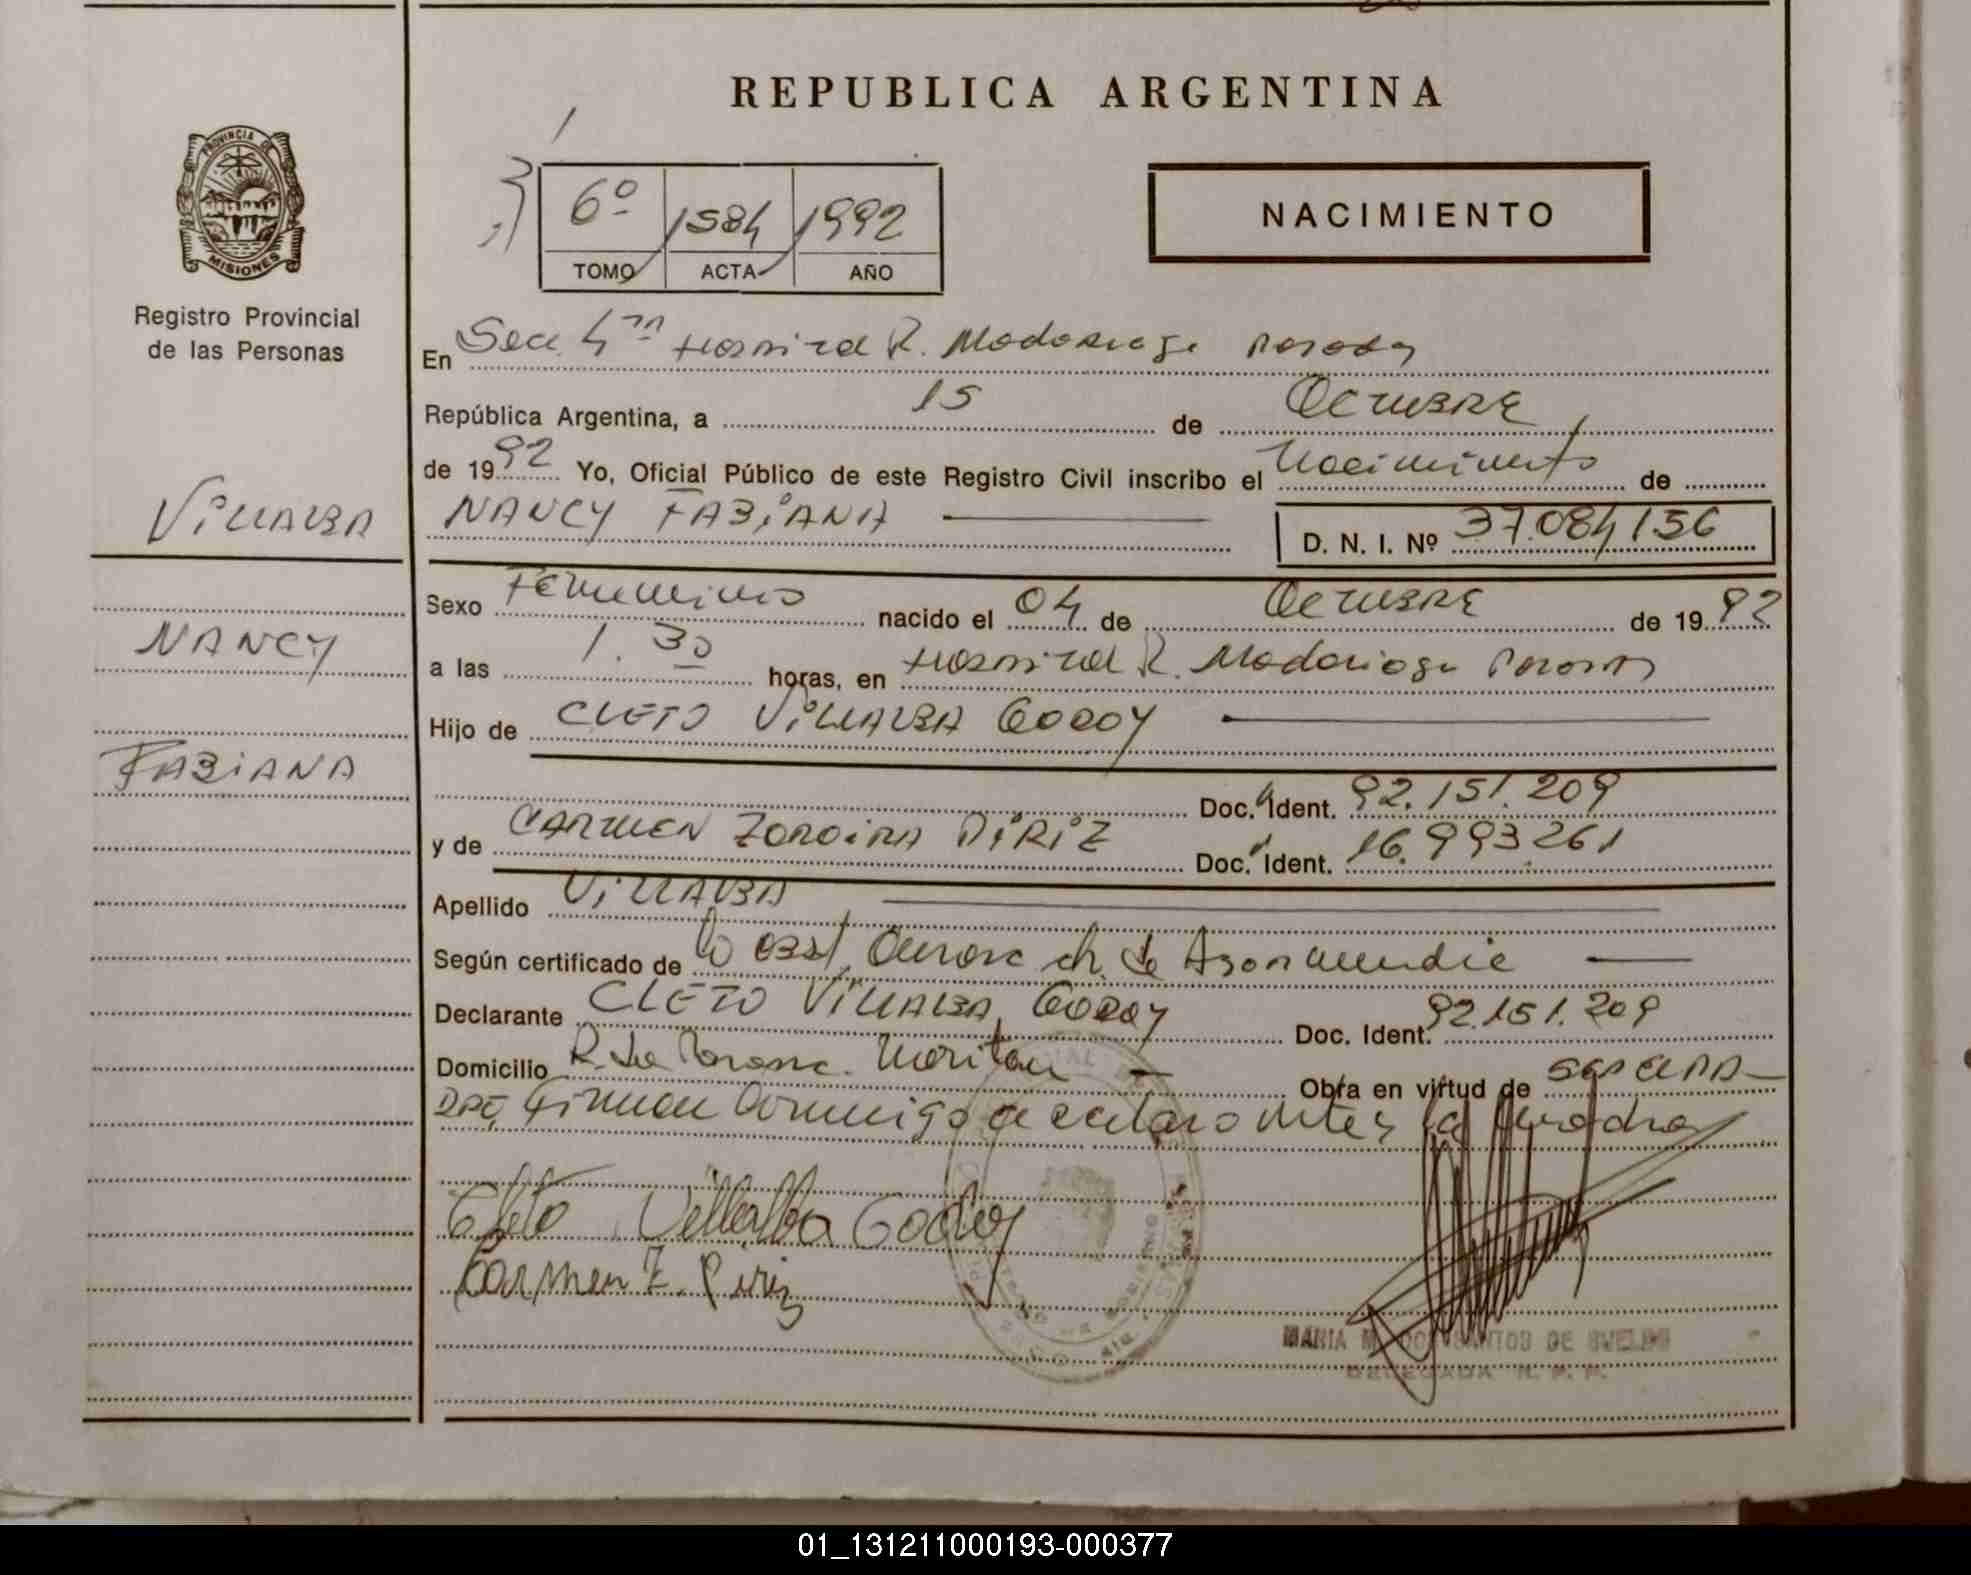 REPUBLICA ARGENTINA
PROVINCIA DE
MISIONES
Registro Provincial
de las Personas
6º 1584 1992
TOMO ACTA AÑO
NACIMIENTO
En Secc. 4ta Hospital R. Madariaga Posadas
República Argentina, a 15 de Octubre
de 1992 Yo, Oficial Público de este Registro Civil inscribo el Nacimiento de
VILLALBA
NANCY FABIANA
D. N. I. Nº 37.084156
Sexo Femenino nacido el 04 de Octubre de 1992
NANCY
a las 1.30 horas, en Hospital R. Madariaga Posadas
Hijo de CLETO VILLALBA GODOY
FABIANA
Doc. Ident. 92.151.209
y de CARMEN PIRIZ Doc. Ident. 16.993.261
Apellido VILLALBA
Según certificado de la obst.
Declarante CLETO VILLALBA GODOY Doc. Ident. 92.151.209
Domicilio Obra en virtud de ser el PP
Firman Conmigo declarante y la Madre
Cleto Villalba Godoy
Carmen Z. Piriz
MARIA M. DOS SANTOS DE
DELEGADA R. P. P.
01_131211000193-000377